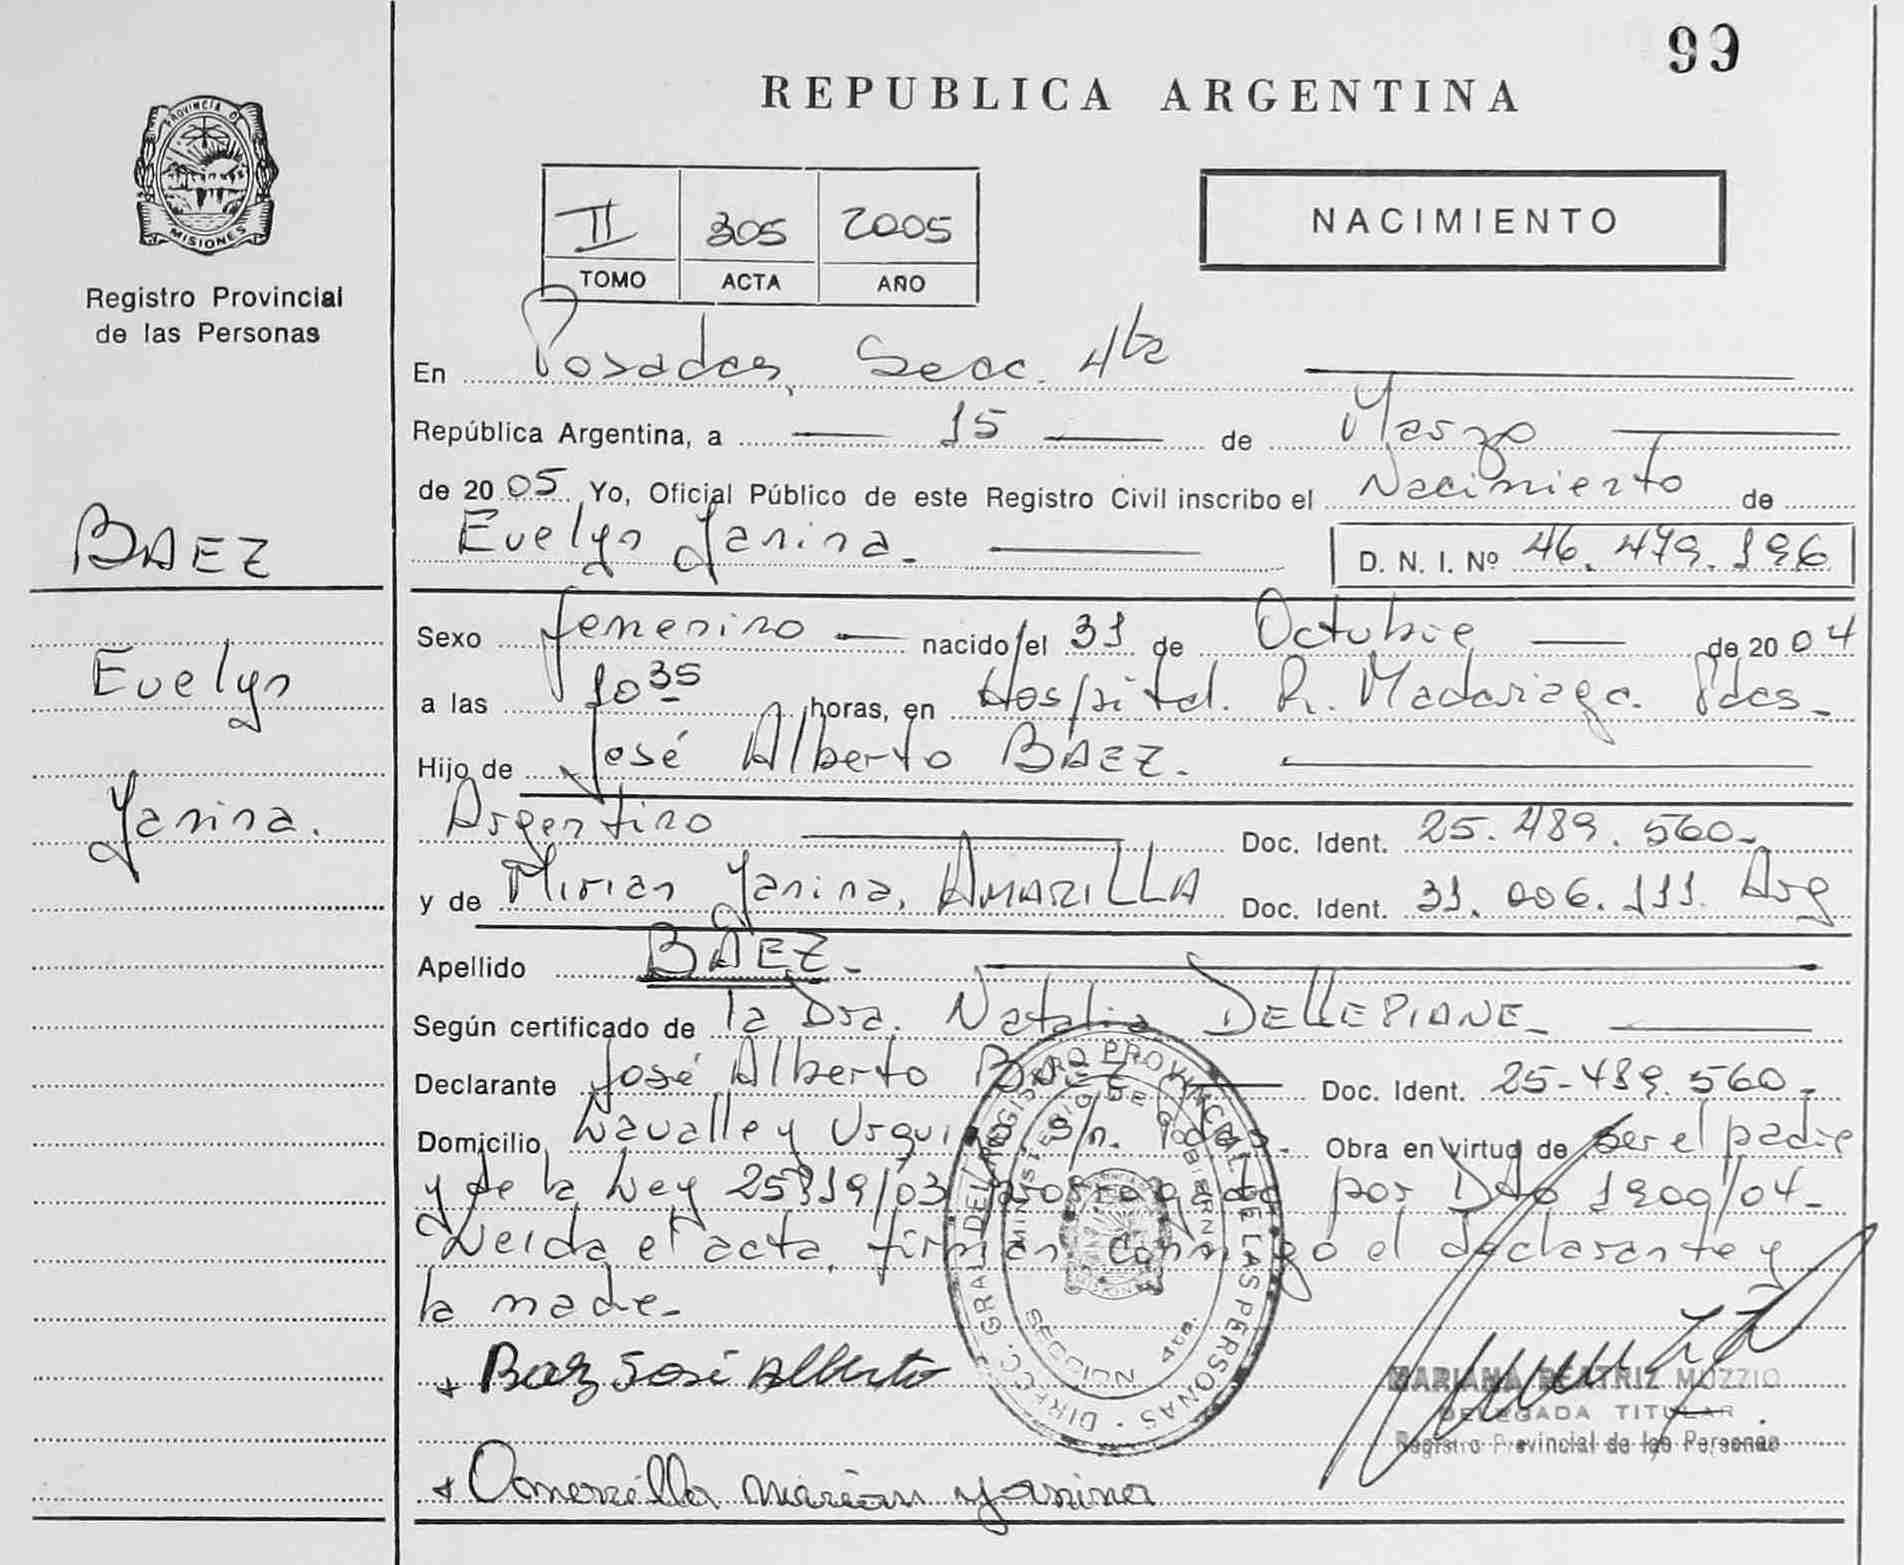 99
REPUBLICA ARGENTINA
PROVINCIA D
MISIONES
Registro Provincial
de las Personas
II 305 2005
TOMO ACTA AÑO
NACIMIENTO
BAEZ
Evelyn
Yanina.
En Posadas, Secc. 4ta
República Argentina, a 15 de Marzo
de 2005 Yo, Oficial Público de este Registro Civil inscribo el Nacimiento de
Evelyn Yanina.- D. N. I. Nº 46.479.196
Sexo femenino nacido el 31 de Octubre de 2004
a las 10 35 horas, en Hospital. R. Madariaga. Pdas-
Hijo de José Alberto BAEZ.
Argentino Doc. Ident. 25.489.560-
y de Mirian Yanina, AMARILLA Doc. Ident. 31.006.111. Arg
Apellido BAEZ-
Según certificado de la Dra. Natalia DELLEPIANE-
Declarante José Alberto BAEZ Doc. Ident. 25-489.560-
Domicilio Lavalle y Urquiza, s/n. Pdas.- Obra en virtud de ser el padre
y de la Ley 25819/03 prorrogada por Dto 1909/04-
Leida el acta, firman conmigo el declarante y
la madre-
+ Baez José Alberto
+ Amarilla mirian yanina
DIRECC. GRAL. DEL REGISTRO PROVINCIAL DE LAS PERSONAS
MINISTERIO DE GOBIERNO
SECCION 4ta.
MARIANA BEATRIZ MUZZIO
DELEGADA TITULAR
Registro Provincial de las Personas